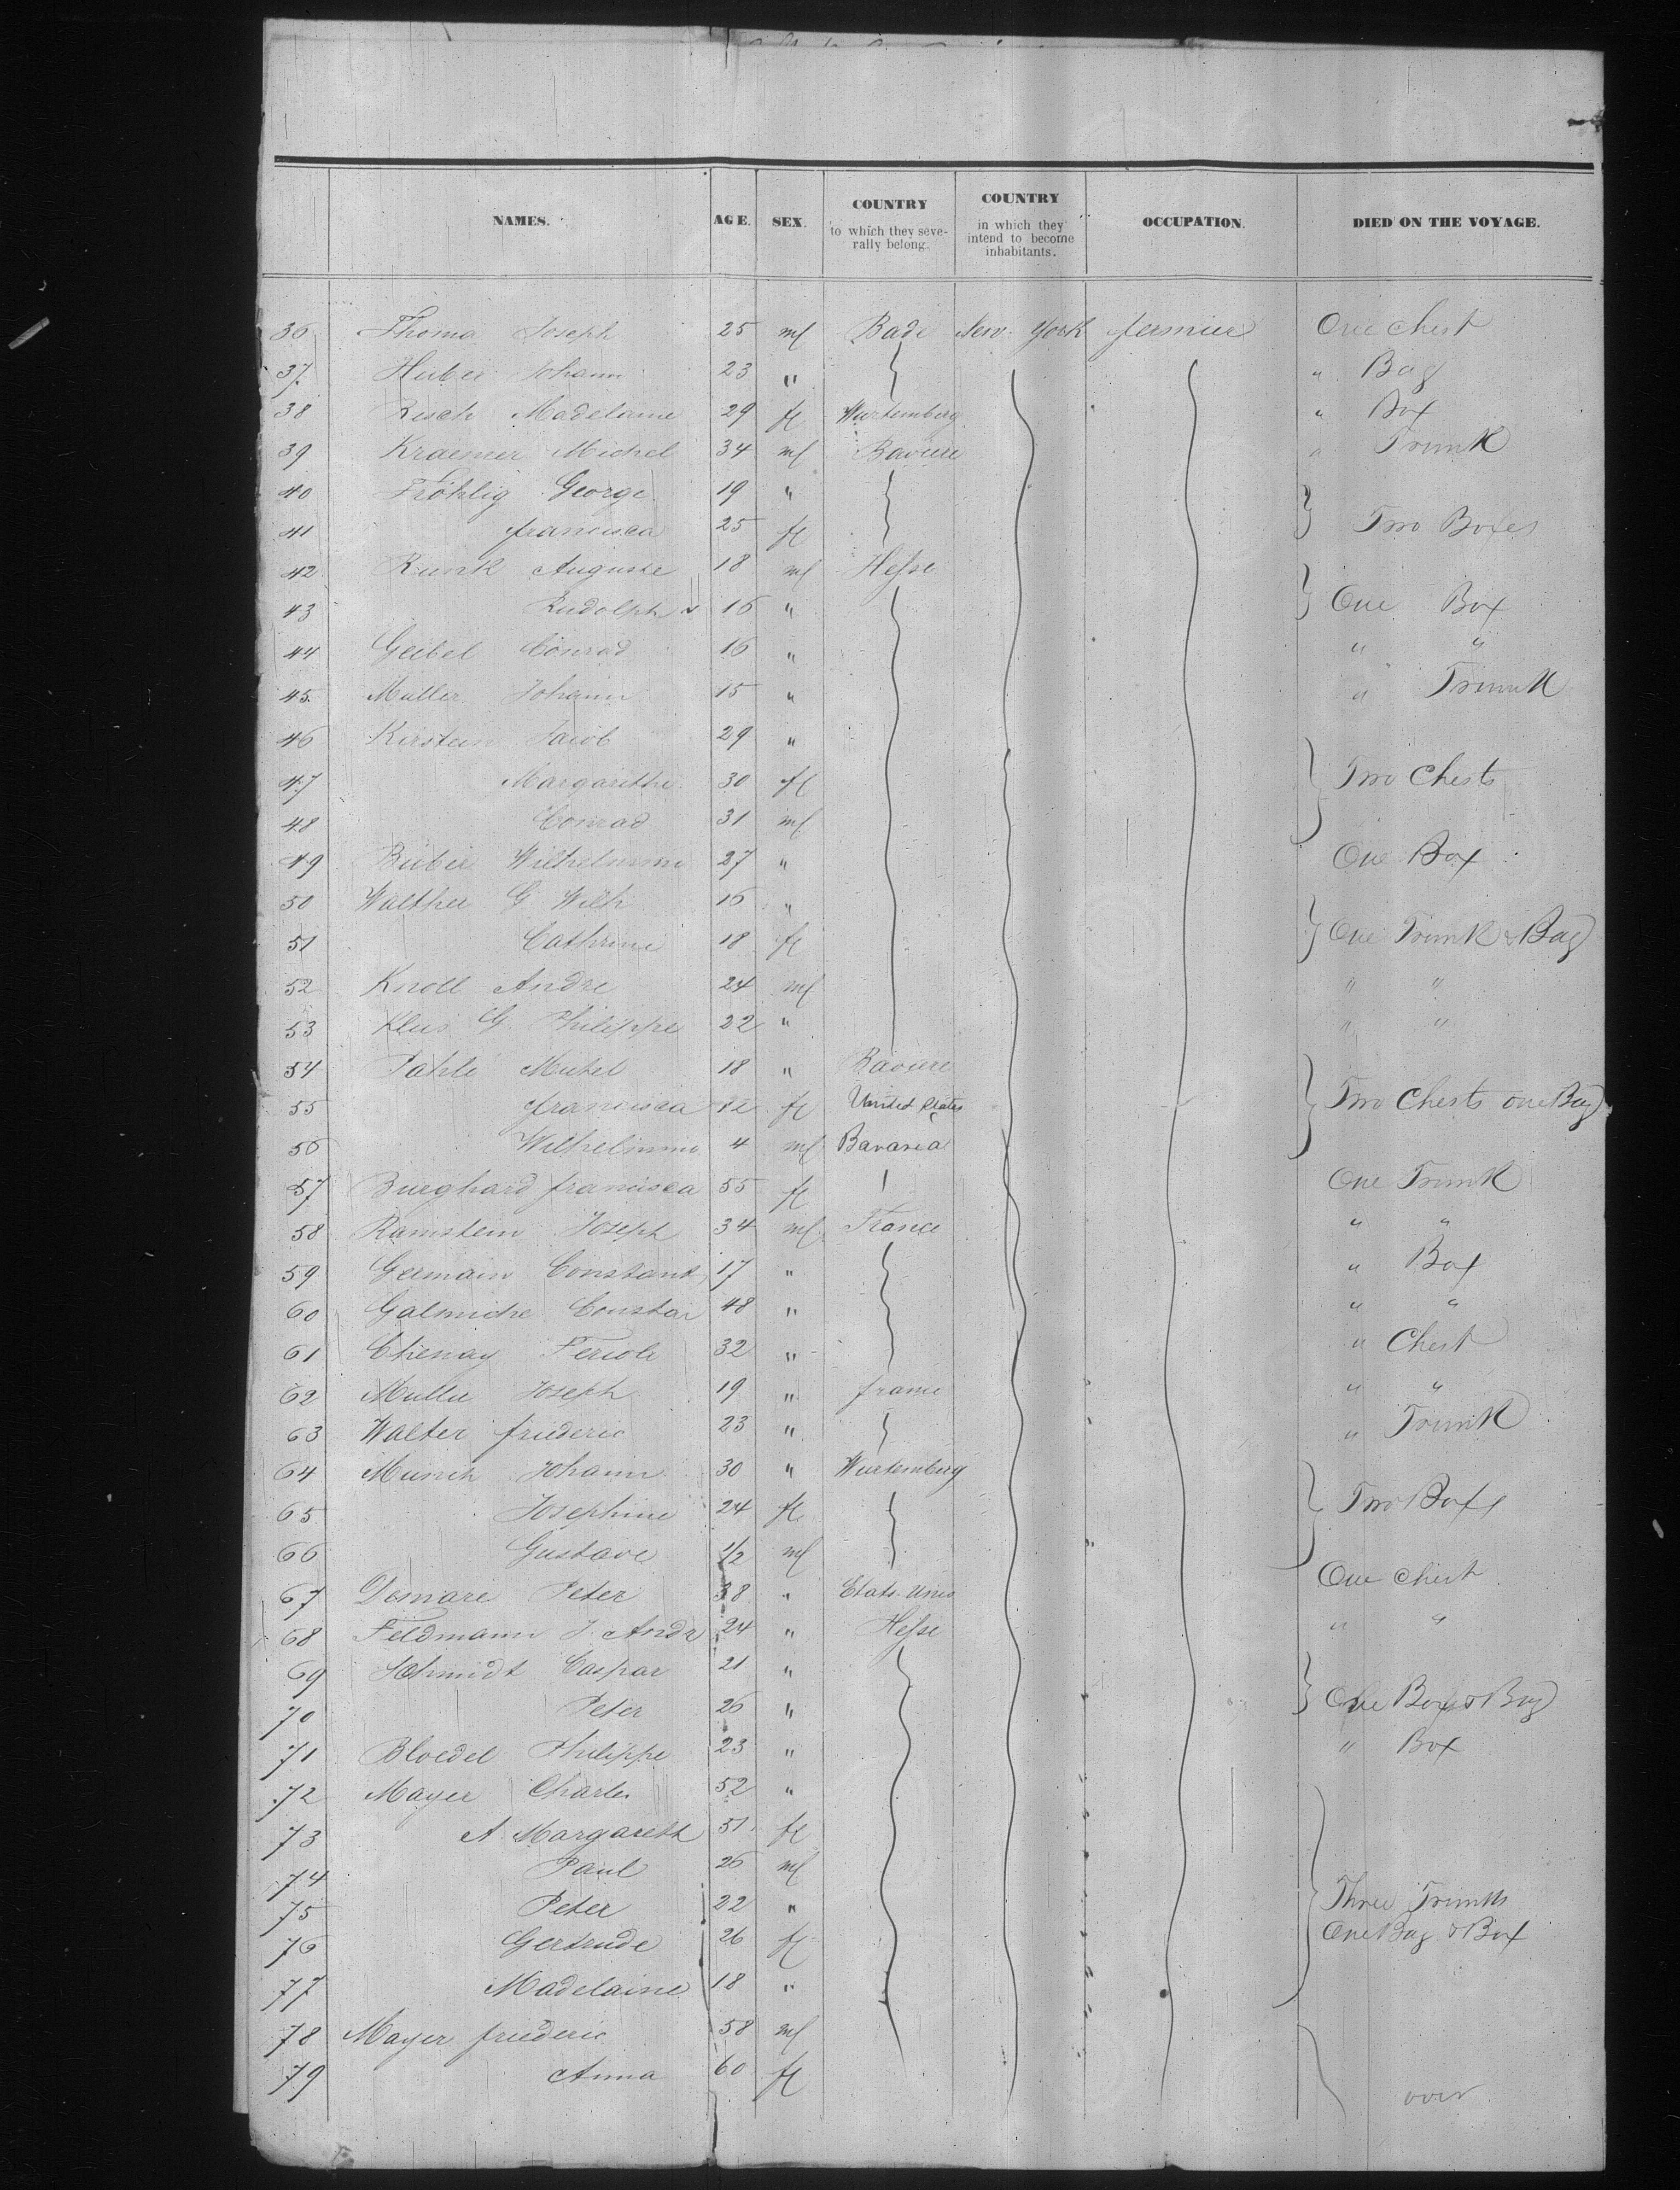 NAMES. AGE. SEX. COUNTRY to which they seve- rally belong. COUNTRY in which they intend to become inhabitants. OCCUPATION. DIED ON THE VOYAGE.
36 Thoma Joseph 25 ml Bade New York fermier One Chest
37 Huber Johann 23 " " Bag
38 Resch Madelaine 29 fl Wurtemberg " Box
39 Kraemer Michel 34 ml Baviere " Trunk
40 Fröhlig George 19 "
41 francisca 25 fl Two Boxes
42 Runk Auguste 18 ml Hesse
43 Rudolph 16 " One Box
44 Geibel Conrad 16 " " "
45 Muller Johann 15 " " Trunk
46 Kirstein Jacob 29 "
47 Margarethe 30 fl Two Chests
48 Conrad 31 ml
49 Wilhelmine 27 " One Box
50 Walther G Wilh 16 "
51 Cathrine 18 fl One Trunk & Bag
52 Knoll Andre 24 ml " "
53 Klus G. Philippe 22 " " "
54 Pahle Michel 18 " Baviere
55 francisca 12 fl United States Two Chests one Bag
56 Wilhelmine 4 ml Bavaria
57 Burghard francisca 55 fl One Trunk
58 Ramstein Joseph 34 ml France " "
59 Germain Constant 17 " " Box
60 Galmiche Constan 48 " " "
61 Chenay Fereole 32 " " Chest
62 Muller Joseph 19 " france " "
63 Walter friederic 23 " " Trunk
64 Munch Johann 30 " Wurtemberg
65 Josephine 24 fl Two Boxes
66 Gustave 1/2 ml
67 Demare Peter 38 " Etats-Unis One Chest
68 Feldmann J. Andr 24 " Hesse " "
69 Schmidt Caspar 21 "
70 Peter 26 " One Box & Bag
71 Bloedel Philippe 23 " " Box
72 Mayer Charles 52 "
73 A Margareth 51 fl
74 Paul 26 ml
75 Peter 22 " Three Trunks
76 Gertrude 26 fl One Bag & Box
77 Madelaine 18 "
78 Mayer friederic 58 ml
79 Anna 60 fl over